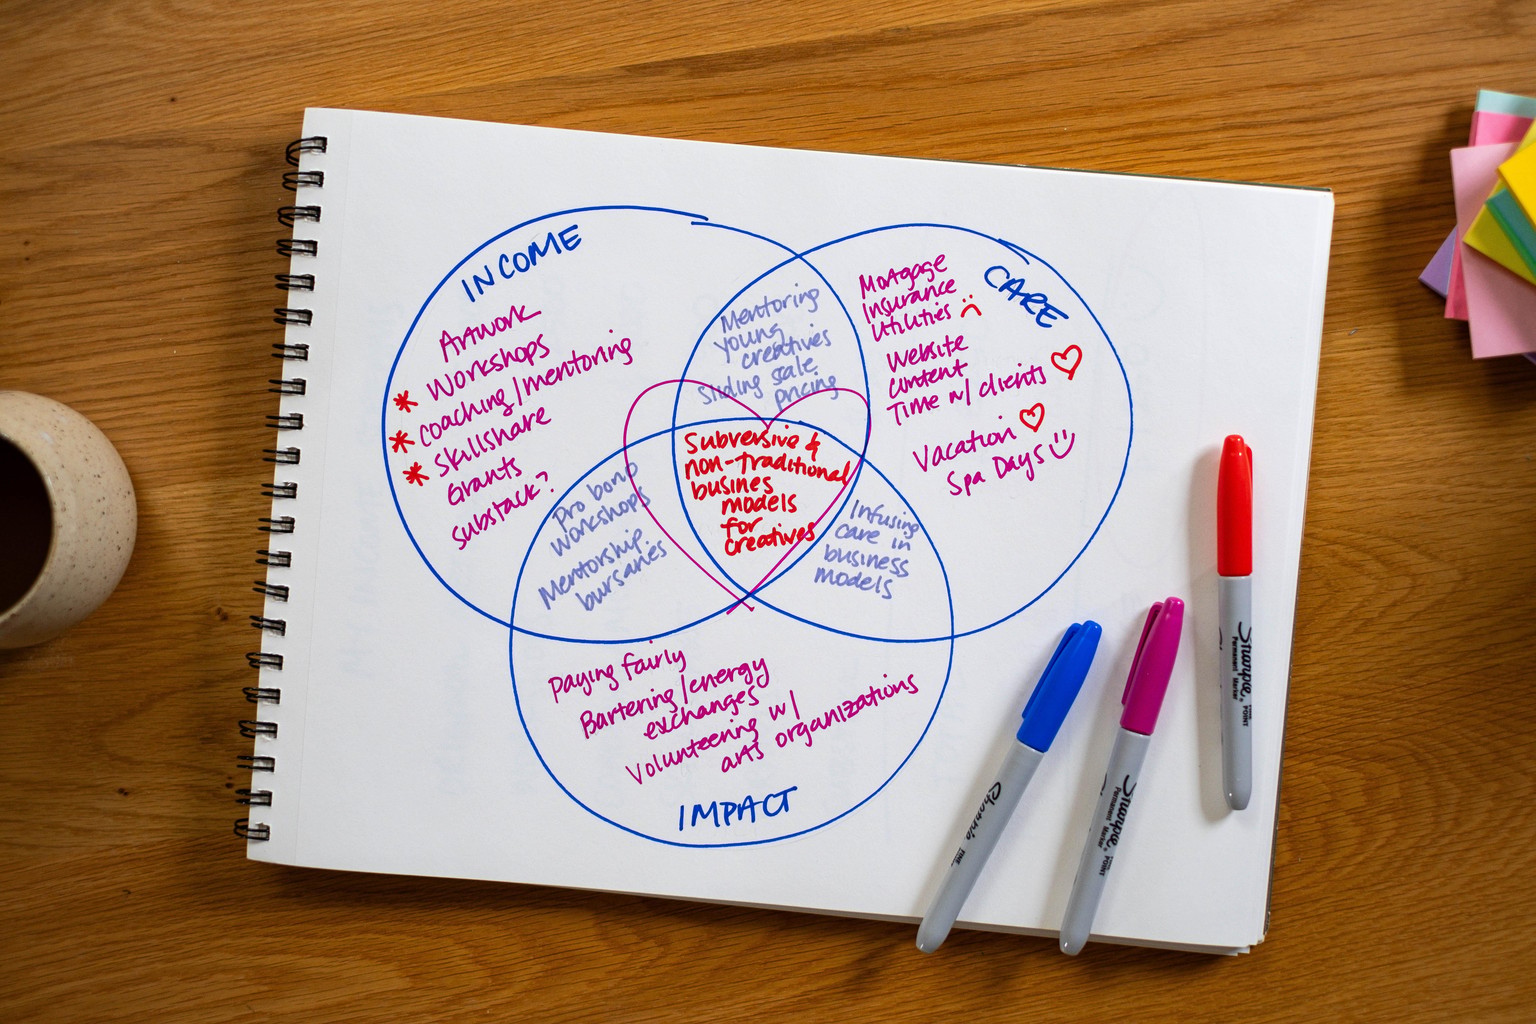 INCOME
Artwork
* Workshops
* Coaching/mentoring
* Skillshare
Grants
Substack?
Mentoring
young
creatives
Sliding scale
pricing
CARE
Mortgage
Insurance
Utilities
Website
Content
Time w/ clients
Vacation
Spa Days
Subversive &
non-traditional
busines
models
for
creatives
Pro bono
workshops
Mentorship
bursaries
Infusing
care in
business
models
Paying fairly
Bartering/energy
exchanges
Volunteering w/
arts organizations
IMPACT
Sharpie
Permanent Marker
FINE POINT
Sharpie
Permanent Marker
POINT
Sharpie
FINE